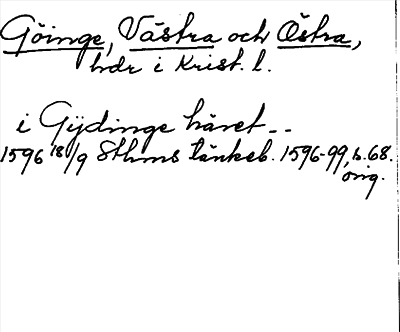 Göinge, Västra och Östra,
hdr i Krist. l.
i Gÿdinge häret --
1596 18/9 Sthms tänkeb. 1596-99, s. 68.
orig.